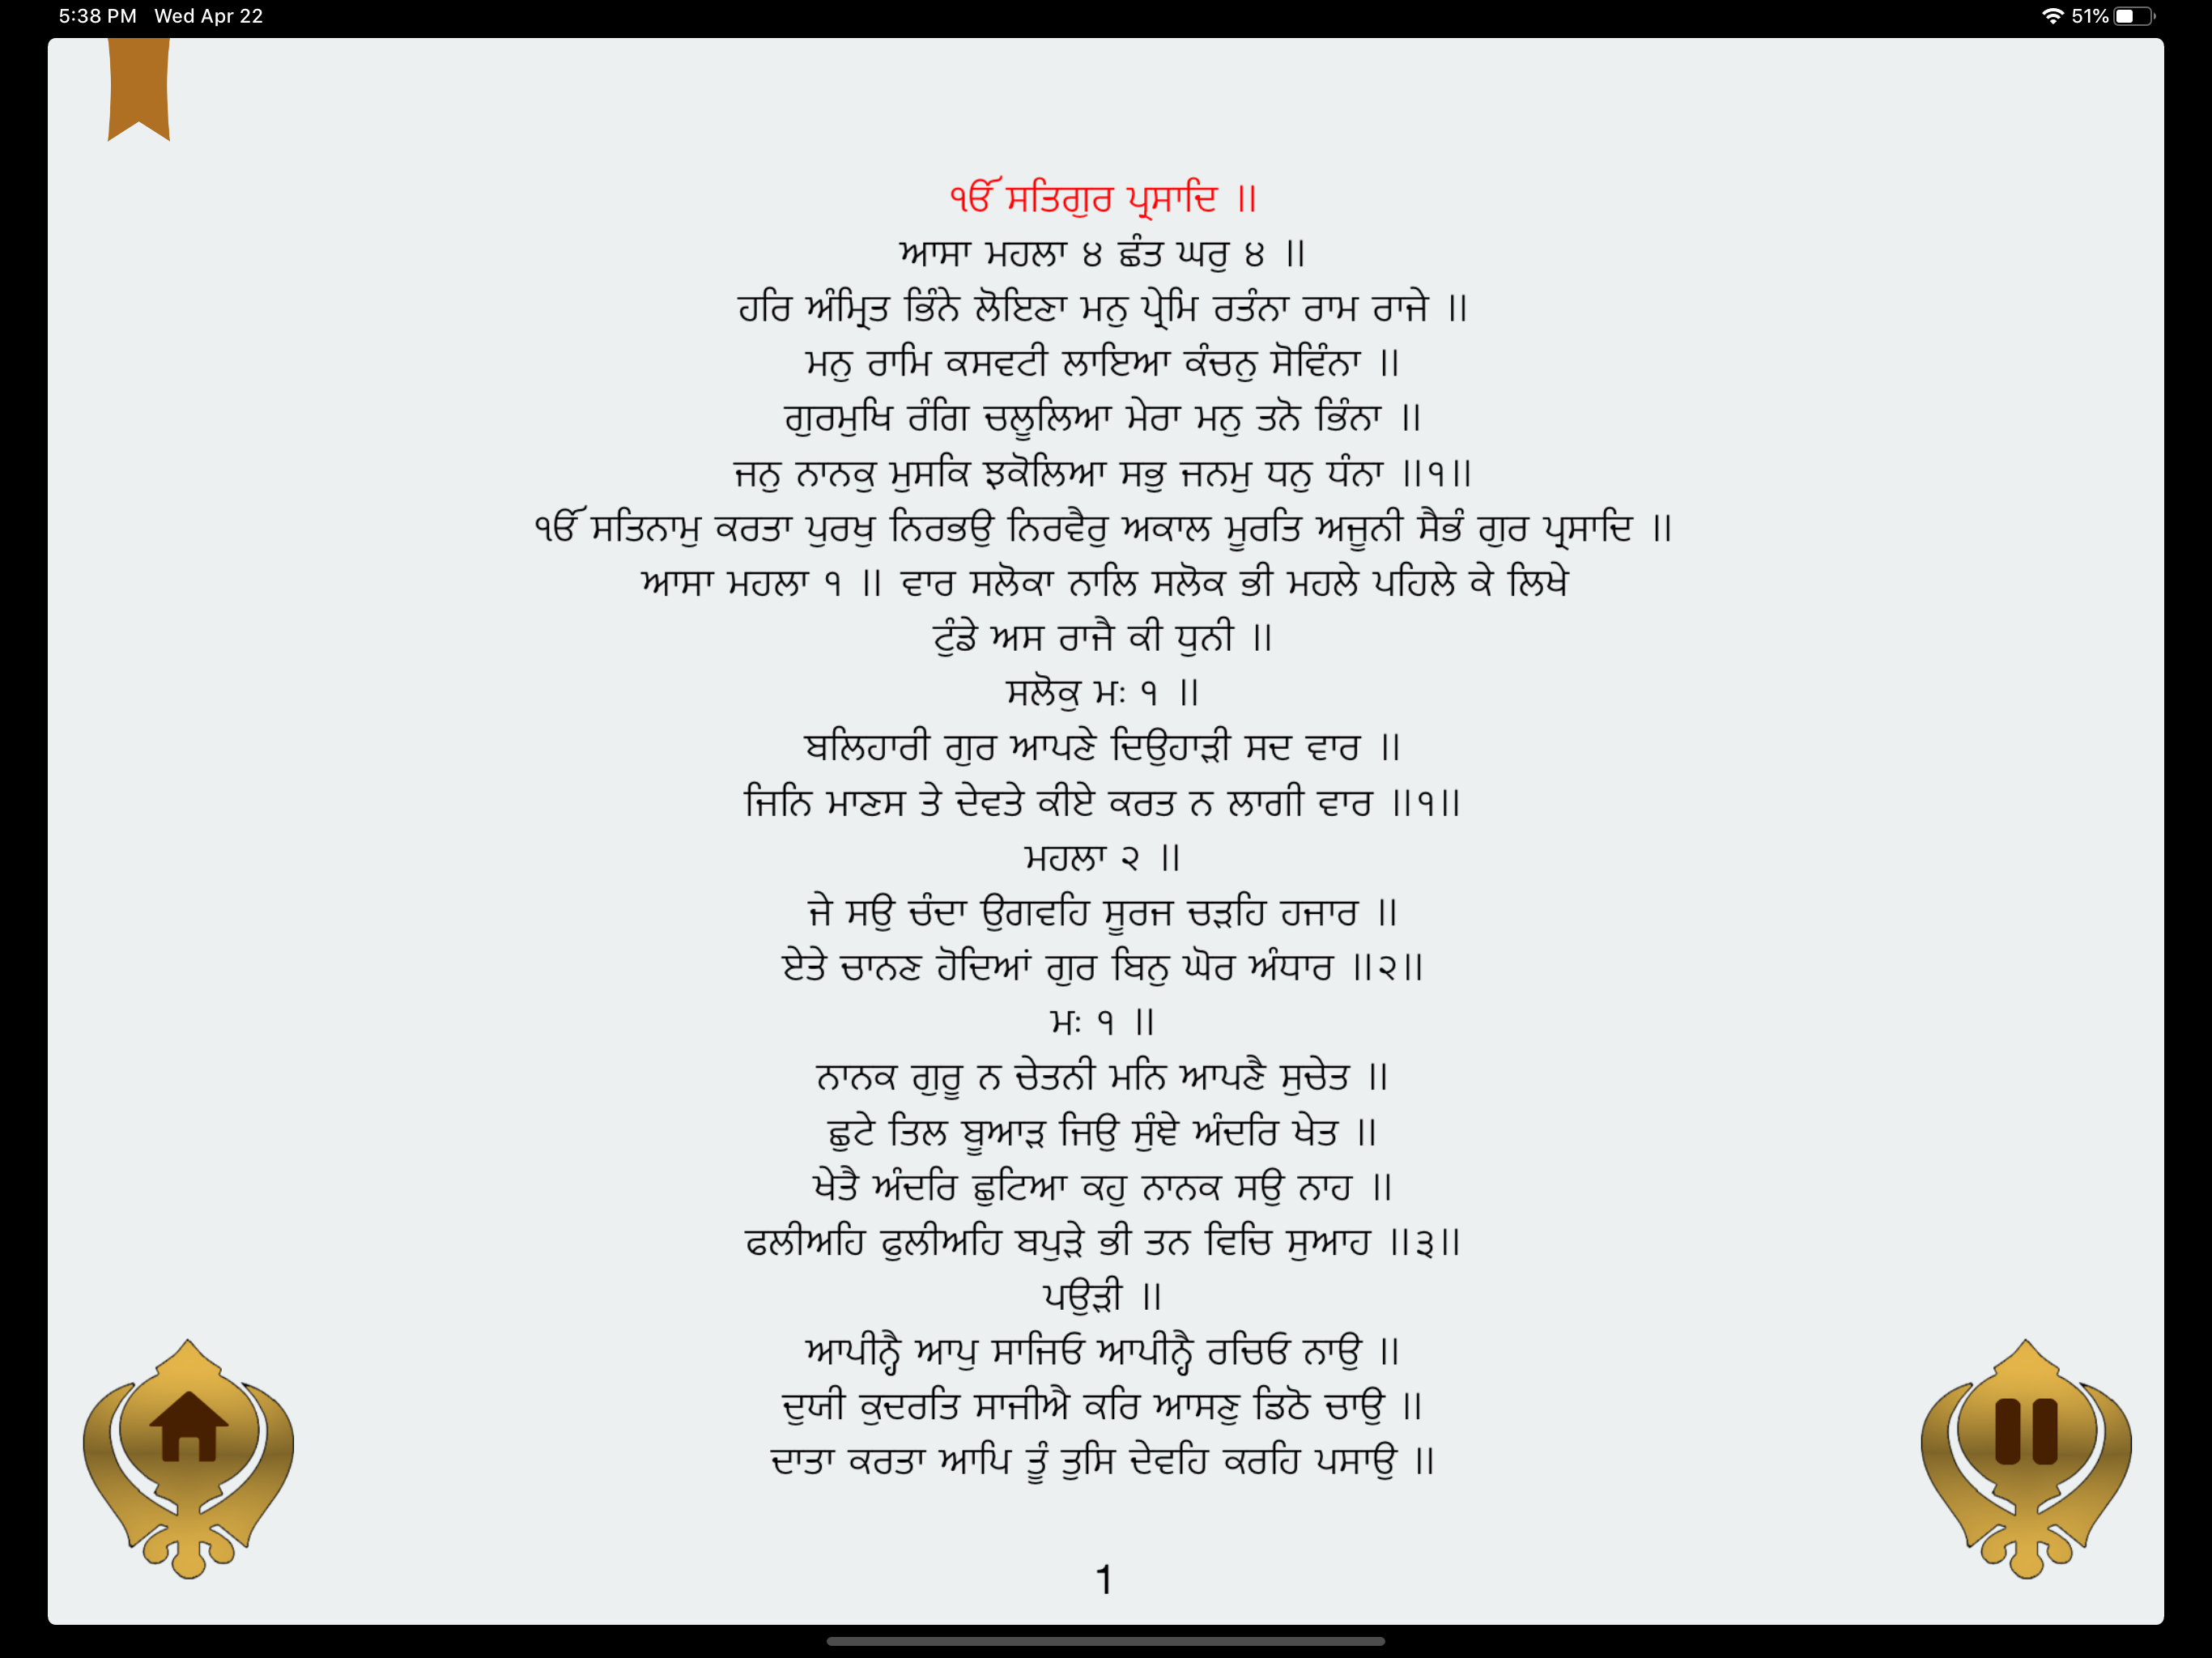 5:38 PM Wed Apr 22 51%
ੴ ਸਤਿਗੁਰ ਪ੍ਰਸਾਦਿ ॥
ਆਸਾ ਮਹਲਾ ੪ ਛੰਤ ਘਰੁ ੪ ॥
ਹਰਿ ਅੰਮ੍ਰਿਤ ਭਿੰਨੇ ਲੋਇਣਾ ਮਨੁ ਪ੍ਰੇਮਿ ਰਤੰਨਾ ਰਾਮ ਰਾਜੇ ॥
ਮਨੁ ਰਾਮਿ ਕਸਵਟੀ ਲਾਇਆ ਕੰਚਨੁ ਸੋਵਿੰਨਾ ॥
ਗੁਰਮੁਖਿ ਰੰਗਿ ਚਲੂਲਿਆ ਮੇਰਾ ਮਨੁ ਤਨੋ ਭਿੰਨਾ ॥
ਜਨੁ ਨਾਨਕੁ ਮੁਸਕਿ ਝਕੋਲਿਆ ਸਭੁ ਜਨਮੁ ਧਨੁ ਧੰਨਾ ॥੧॥
ੴ ਸਤਿਨਾਮੁ ਕਰਤਾ ਪੁਰਖੁ ਨਿਰਭਉ ਨਿਰਵੈਰੁ ਅਕਾਲ ਮੂਰਤਿ ਅਜੂਨੀ ਸੈਭੰ ਗੁਰ ਪ੍ਰਸਾਦਿ ॥
ਆਸਾ ਮਹਲਾ ੧ ॥ ਵਾਰ ਸਲੋਕਾ ਨਾਲਿ ਸਲੋਕ ਭੀ ਮਹਲੇ ਪਹਿਲੇ ਕੇ ਲਿਖੇ
ਟੁੰਡੇ ਅਸ ਰਾਜੈ ਕੀ ਧੁਨੀ ॥
ਸਲੋਕੁ ਮਃ ੧ ॥
ਬਲਿਹਾਰੀ ਗੁਰ ਆਪਣੇ ਦਿਉਹਾੜੀ ਸਦ ਵਾਰ ॥
ਜਿਨਿ ਮਾਣਸ ਤੇ ਦੇਵਤੇ ਕੀਏ ਕਰਤ ਨ ਲਾਗੀ ਵਾਰ ॥੧॥
ਮਹਲਾ ੨ ॥
ਜੇ ਸਉ ਚੰਦਾ ਉਗਵਹਿ ਸੂਰਜ ਚੜਹਿ ਹਜਾਰ ॥
ਏਤੇ ਚਾਨਣ ਹੋਦਿਆਂ ਗੁਰ ਬਿਨੁ ਘੋਰ ਅੰਧਾਰ ॥੨॥
ਮਃ ੧ ॥
ਨਾਨਕ ਗੁਰੂ ਨ ਚੇਤਨੀ ਮਨਿ ਆਪਣੈ ਸੁਚੇਤ ॥
ਛੁਟੇ ਤਿਲ ਬੂਆੜ ਜਿਉ ਸੁੰਞੇ ਅੰਦਰਿ ਖੇਤ ॥
ਖੇਤੈ ਅੰਦਰਿ ਛੁਟਿਆ ਕਹੁ ਨਾਨਕ ਸਉ ਨਾਹ ॥
ਫਲੀਅਹਿ ਫੁਲੀਅਹਿ ਬਪੁੜੇ ਭੀ ਤਨ ਵਿਚਿ ਸੁਆਹ ॥੩॥
ਪਉੜੀ ॥
ਆਪੀਨ੍ਹੈ ਆਪੁ ਸਾਜਿਓ ਆਪੀਨ੍ਹੈ ਰਚਿਓ ਨਾਉ ॥
ਦੁਯੀ ਕੁਦਰਤਿ ਸਾਜੀਐ ਕਰਿ ਆਸਣੁ ਡਿਠੋ ਚਾਉ ॥
ਦਾਤਾ ਕਰਤਾ ਆਪਿ ਤੂੰ ਤੁਸਿ ਦੇਵਹਿ ਕਰਹਿ ਪਸਾਉ ॥
1